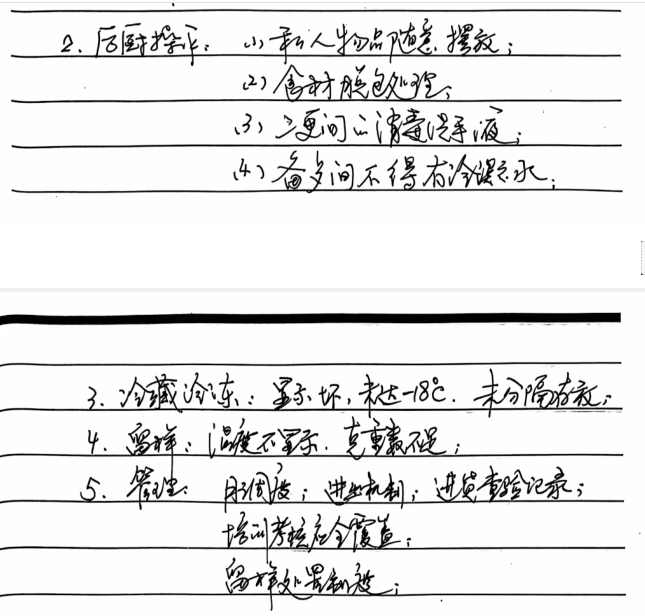 2. 后厨操作: (1) 私人物品随意摆放;
(2) 食材脱包处理;
(3) 二更间的消毒洗手液;
(4) 备餐间不得有冷凝水;
3. 冷藏冷冻: 显示坏, 未达-18℃. 未分隔存放;
4. 留样: 温度不显示. 克重数不足;
5. 管理: 制度; 进出机制; 进货查验记录;
培训考核应全覆盖;
留样处置制度;